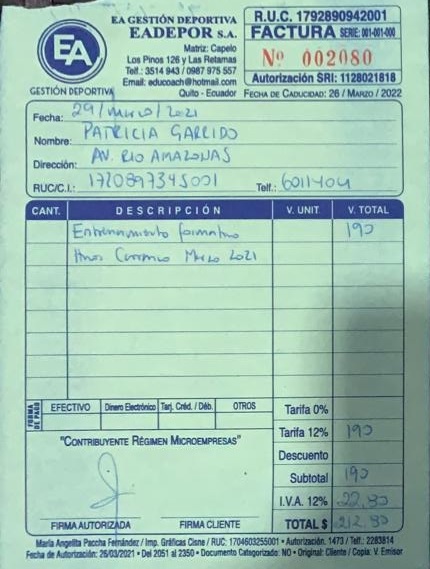 EA
GESTIÓN DEPORTIVA
EA GESTIÓN DEPORTIVA
EADEPOR S.A.
Matriz: Capelo
Los Pinos 126 y Las Retamas
Telf.: 3514 943 / 0987 975 557
Email: educoach@hotmail.com
Quito - Ecuador
R.U.C. 1792890942001
FACTURA SERIE: 001-001-000
Nº 002080
Autorización SRI: 1128021818
FECHA DE CADUCIDAD: 26 / MARZO / 2022
Fecha: 29/Marzo/2021
Nombre: PATRICIA GARRIDO
Dirección: AV. RIO AMAZONAS
RUC/C.I.: 1720897345001 Telf.: 6011404
CANT. DESCRIPCIÓN V. UNIT. V. TOTAL
Entrenamiento formativo 190
Marzo 2021
FORMA DE PAGO EFECTIVO Dinero Electrónico Tarj. Créd. / Déb. OTROS
"CONTRIBUYENTE RÉGIMEN MICROEMPRESAS"
FIRMA AUTORIZADA FIRMA CLIENTE
Tarifa 0%
Tarifa 12% 190
Descuento
Subtotal 190
I.V.A. 12% 22.80
TOTAL $ 212.80
María Angelita Paccha Fernández / Imp. Gráficas Cisne / RUC: 1704603255001 • Autorización: 1473 / Telf.: 2283814
Fecha de Autorización: 26/03/2021 • Del 2051 al 2350 • Documento Categorizado: NO • Original: Cliente / Copia: V. Emisor